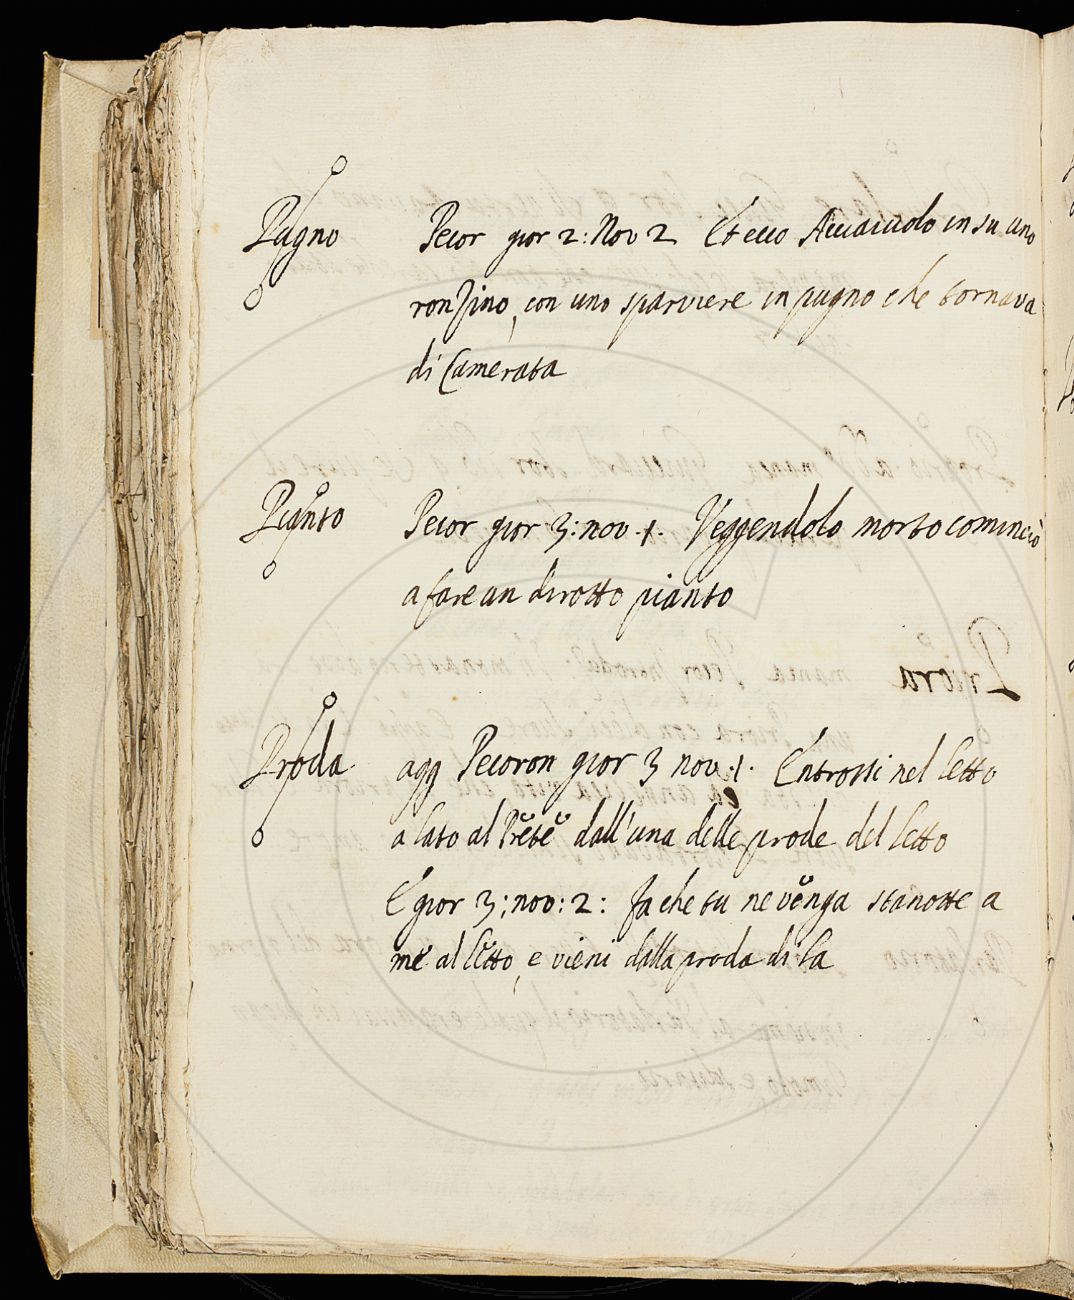 Pugno Pecor gior 2: Nov 2 Et ecco Acciaiuolo in su uno
ronzino, con uno sparviere in pugno che tornava
di Camerata
Pianto Pecor gior 3: nov. 1. Veggendolo morto cominciò
a fare un dirotto pianto
Proda agg Pecoron gior 3 nov. 1. Entrossi nel letto
a lato al Prete dall'una delle prode del letto
E gior 3; nov: 2: fa che tu ne venga stanotte a
me al letto, e vieni dalla proda di la